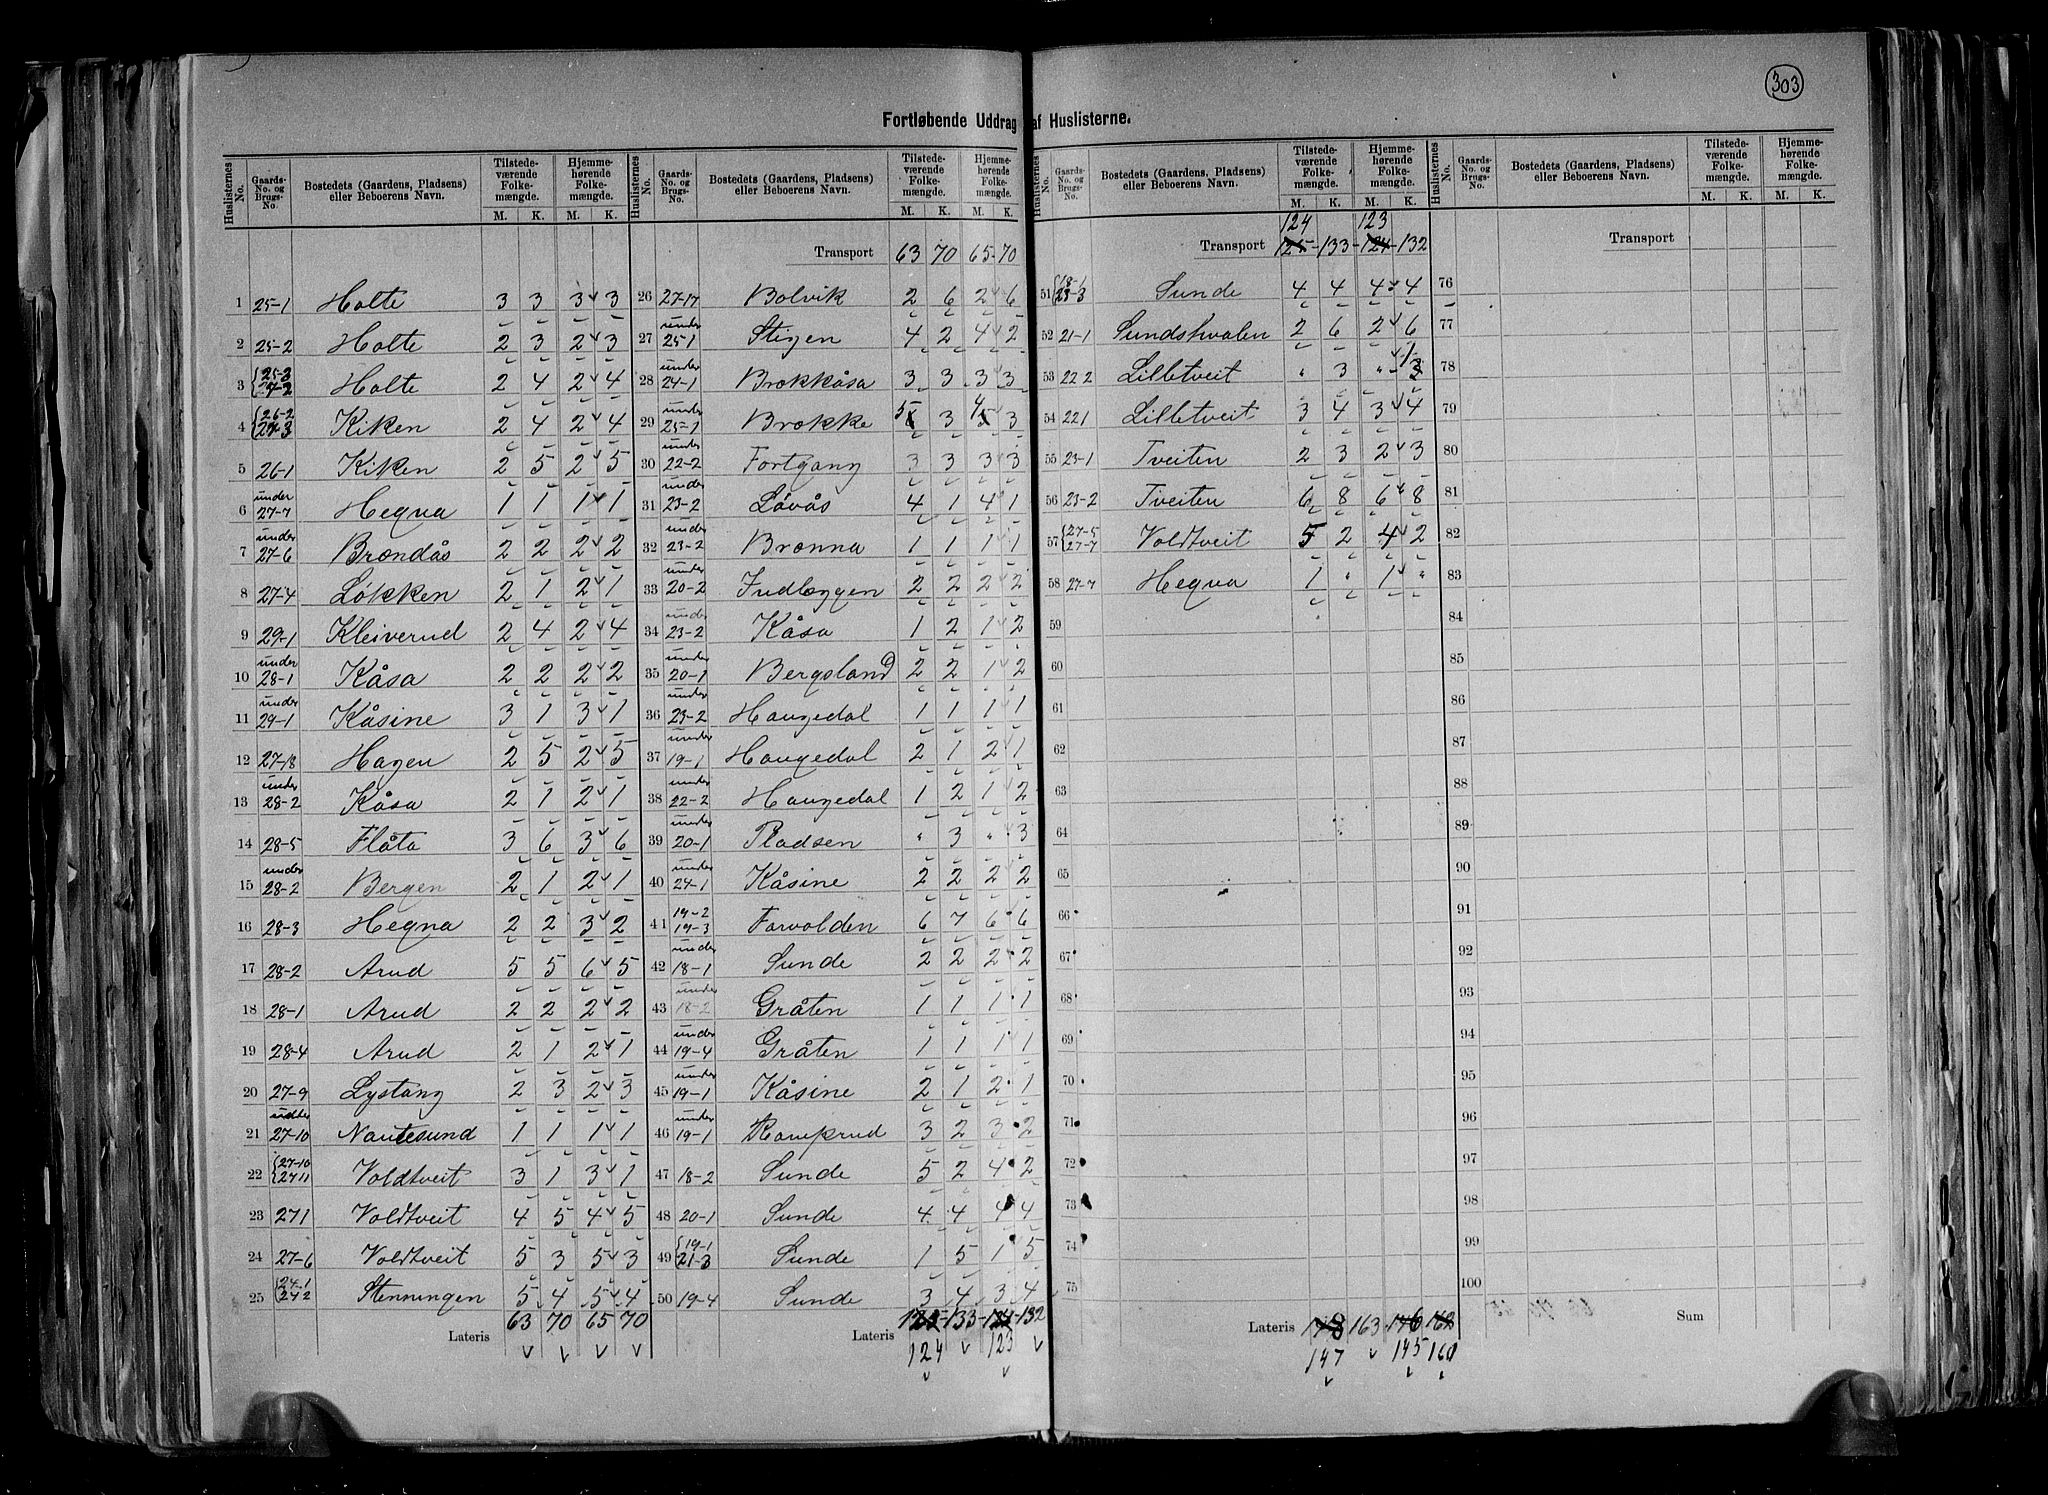 303
Fortløbende Uddrag af Huslisterne.
Huslisternes No. Gaards-No. og Brugs-No. Bostedets (Gaardens, Pladsens) eller Beboerens Navn. Tilstedeværende Folkemængde. M. K. Hjemmehørende Folkemængde. M. K.
1 25-1 Holte 3 3 3 3
2 25-2 Holte 2 3 2 3
3 25-3 27-2 Holte 2 4 2 4
4 26-2 27-3 Kiken 2 4 2 4
5 26-1 Kiken 2 5 2 5
6 under 27-7 Hegna 1 1 1 1
7 under 27-6 Brændås 2 2 2 2
8 27-4 Løkken 2 1 2 1
9 29-1 Kleiverud 2 4 2 4
10 under 28-1 Kåsa 2 2 2 2
11 under 29-1 Kåsine 3 1 3 1
12 27-18 Hagen 2 5 2 5
13 under 28-2 Kåsa 2 1 2 1
14 28-5 Flåta 3 6 3 6
15 under 28-2 Bergen 2 1 2 1
16 28-3 Hegna 2 2 3 2
17 28-2 Arud 5 5 6 5
18 28-1 Arud 2 2 2 2
19 28-4 Arud 2 1 2 1
20 27-9 Lystang 2 3 2 3
21 27-10 Nautesund 1 1 1 1
22 27-10 27 11 Voldtveit 3 1 3 1
23 27 1 Voldtveit 4 5 4 5
24 27-6 Voldtveit 5 3 5 3
25 24-1 24 2 Stenningen 5 4 5 4
Lateris 63 70 65 70
Huslisternes No. Gaards-No. og Brugs-No. Bostedets (Gaardens, Pladsens) eller Beboerens Navn. Tilstedeværende Folkemængde. M. K. Hjemmehørende Folkemængde. M. K.
Transport 63 70 65-70
26 27-17 Bolvik 2 6 2 6
27 under 25-1 Stigen 4 2 4 2
28 under 24-1 Brækkåsa 3 3 3 3
29 under 25-1 Brække 5 3 4 3
30 under 22-2 Fortgang 3 3 3 3
31 under 23-2 Løvås 4 1 4 1
32 under 23-2 Brænna 1 1 1 1
33 under 20-2 Indlæggen 2 2 2 2
34 under 23-2 Kåsa 1 2 1 2
35 under 20-1 Bergsland 2 2 1 2
36 under 23-2 Haugedal 1 1 1 1
37 under 19-1 Haugedal 2 1 2 1
38 under 22-2 Haugedal 1 2 1 2
39 under 20-1 Pladsen " 3 " 3
40 under 24-1 Kåsine 2 2 2 2
41 19-2 19-3 Forvolden 6 7 6 6
42 under 18-1 Sunde 2 2 2 2
43 under 18-2 Gråten 1 1 1 1
44 under 19-4 Gråten 1 1 1 1
45 under 19-1 Kåsine 2 1 2 1
46 under 19-1 3 2 3 2
47 18-2 Sunde 5 2 4 2
48 20-1 Sunde 4 4 4 4
49 19-1 21-3 Sunde 1 5 1 5
50 19-4 Sunde 3 4 3 4
Lateris 125-133-124-132
124 123
Huslisternes No. Gaards-No. og Brugs-No. Bostedets (Gaardens, Pladsens) eller Beboerens Navn. Tilstedeværende Folkemængde. M. K. Hjemmehørende Folkemængde. M. K.
124 123
Transport 125-133-124-132
51 18-1 23-3 Sunde 4 4 4 4
52 21-1 Sundskvalen 2 6 2 6
53 22 2 Lilletveit " 3 " 3
54 22 1 Lilletveit 3 4 3 4
55 23-1 Tveiten 2 3 2 3
56 23-2 Tveiten 6 8 6 8
57 27-5 27-7 Voldtveit 5 2 4 2
58 27-7 Hegna 1 " 1 "
59
60
61
62
63
64
65
66
67
68
69
70
71
72
73
74
75
Lateris 148 163 146 162
147 145 160
Huslisternes No. Gaards-No. og Brugs-No. Bostedets (Gaardens, Pladsens) eller Beboerens Navn. Tilstedeværende Folkemængde. M. K. Hjemmehørende Folkemængde. M. K.
Transport
76
77
78
79
80
81
82
83
84
85
86
87
88
89
90
91
92
93
94
95
96
97
98
99
100
Sum